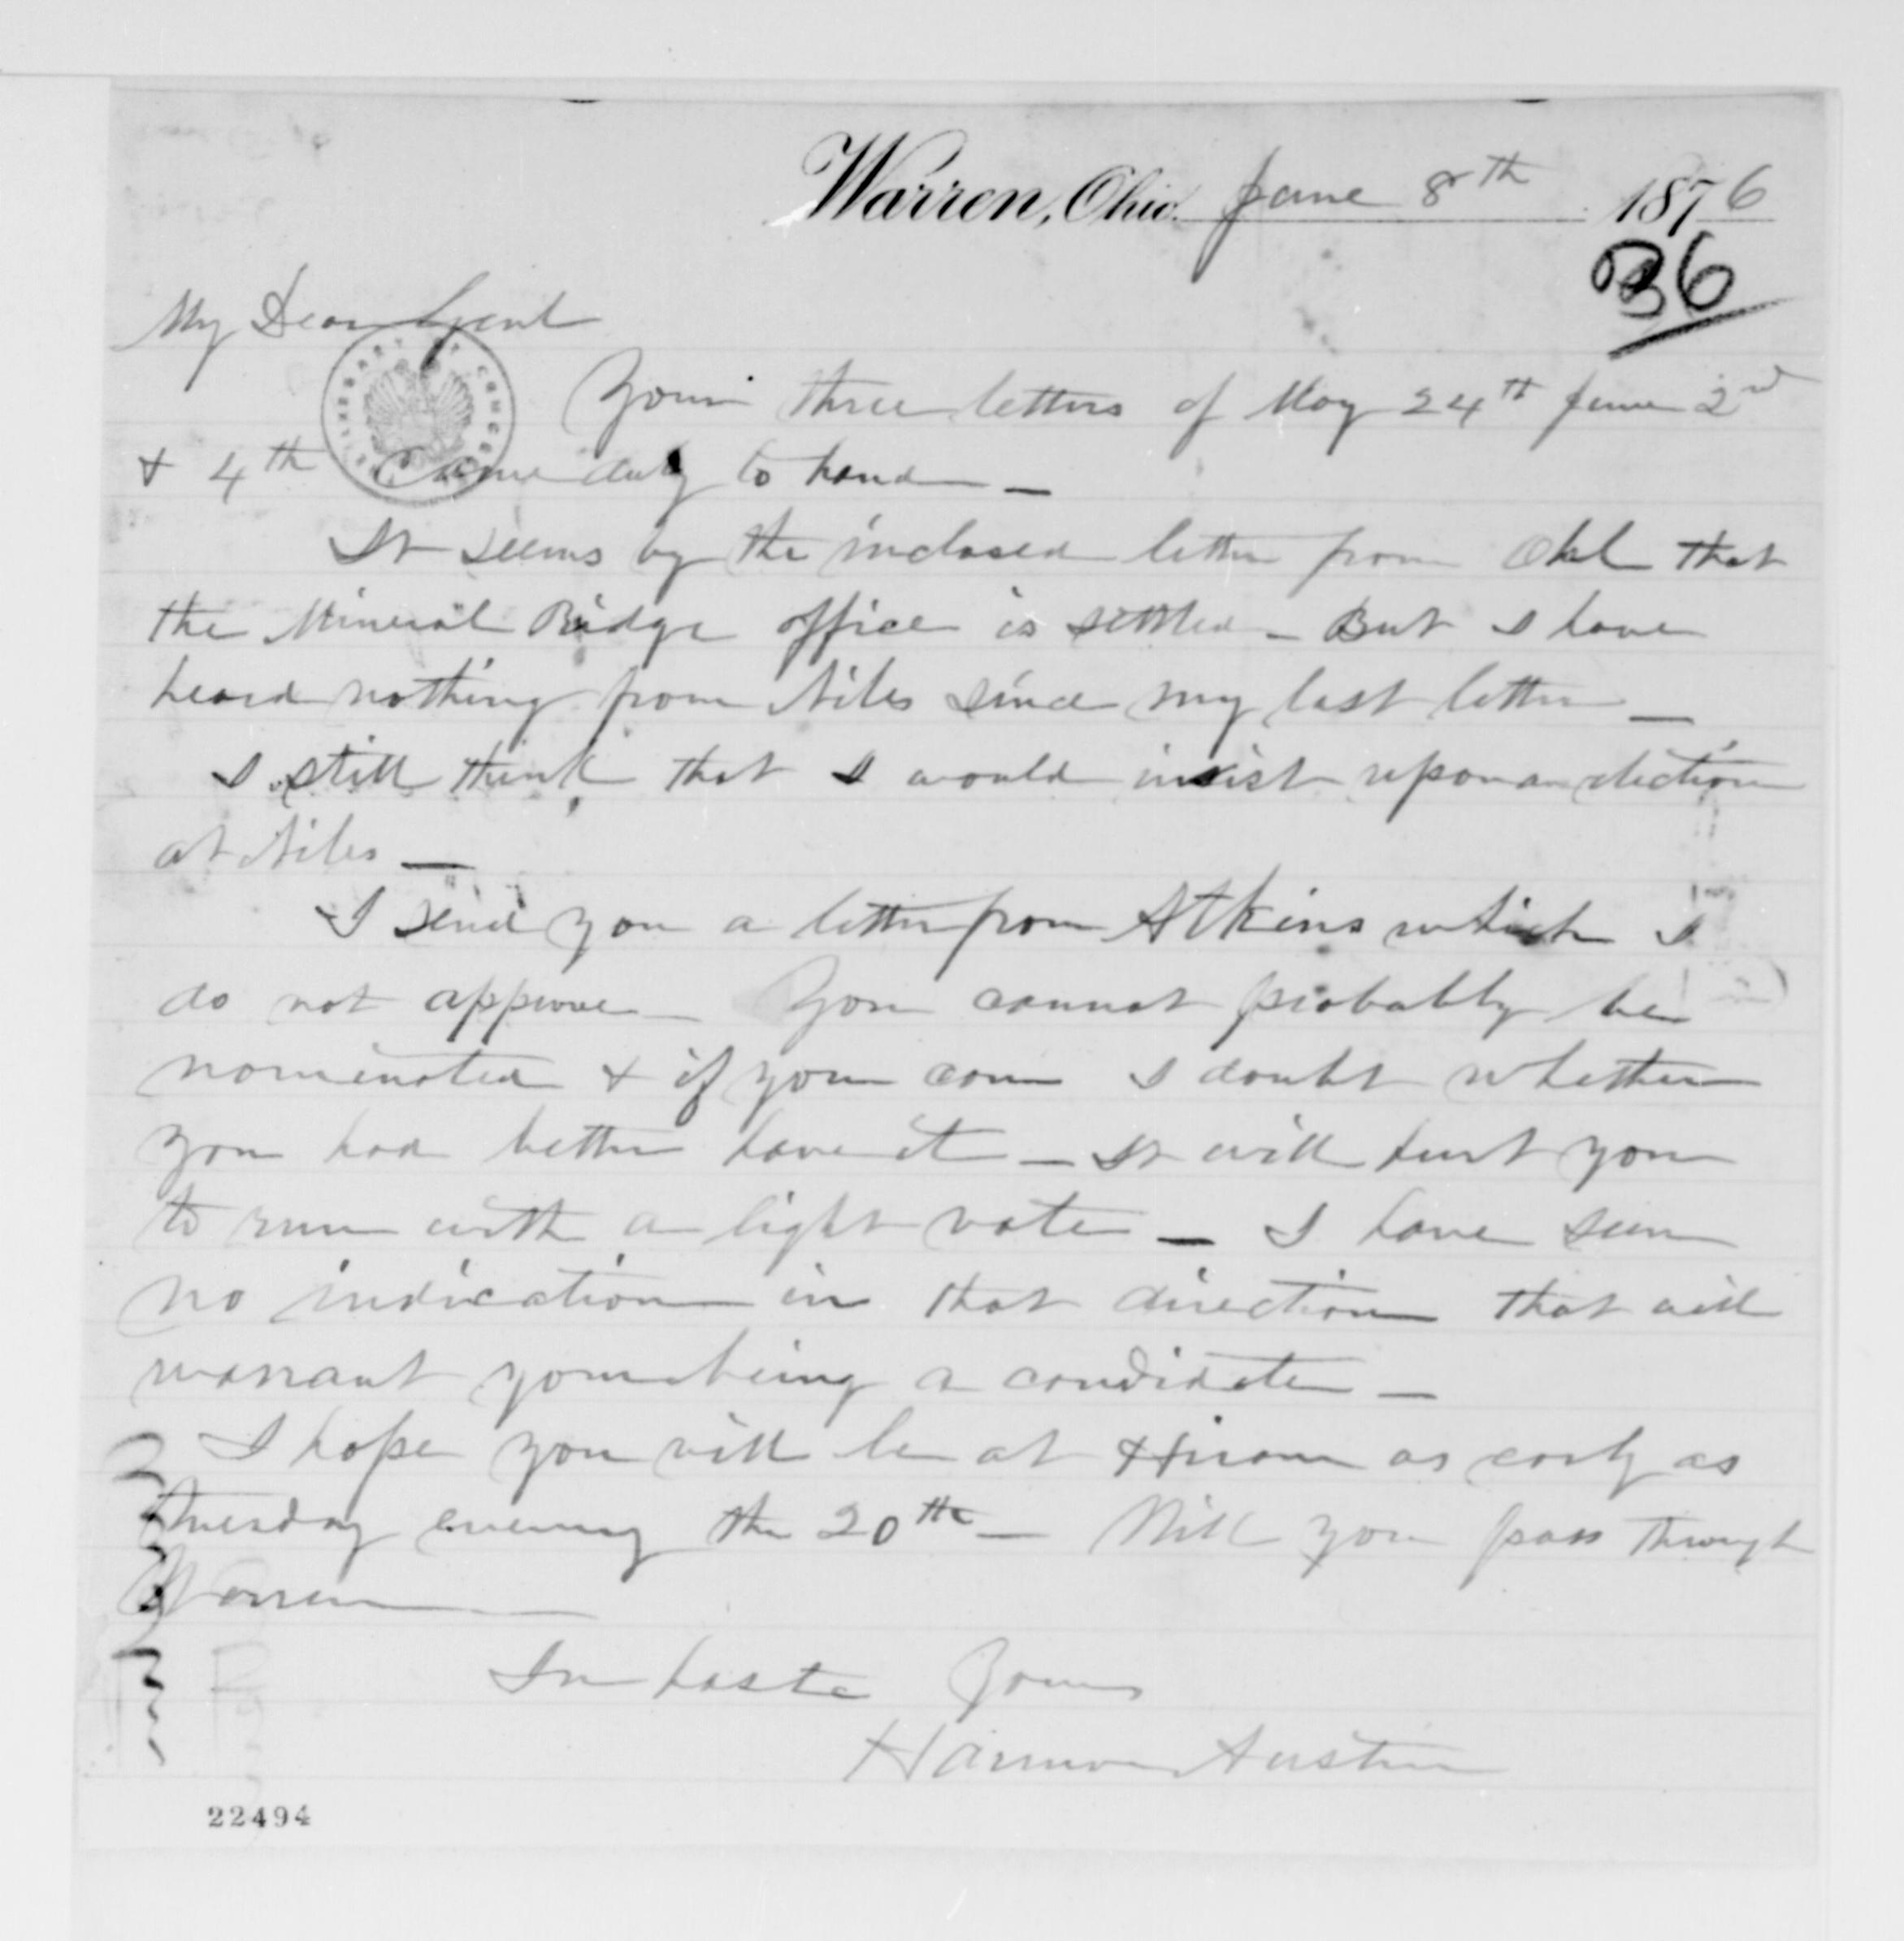 Warren, Ohio. June 8th 1876
36
My Dear Genl
Your three letters of May 24th June 2nd
& 4th came duly to hand —
It seems by the inclosed letter from Ohl that
the Mineral Ridge office is settled – But I have
heard nothing from Niles since my last letter —
I still think that I would insist upon an election
at Niles —
I send you a letter from Atkins which I
do not approve – You cannot probably be
nominated & if you can I doubt whether
you had better have it – It will hurt you
to run with a light vote – I have seen
no indication in that direction that will
warrant your being a candidate –
I hope you will be at Hiram as early as
Tuesday evening the 20th – Will you pass through
Warren
In haste Yours
Harmon Austin
22494